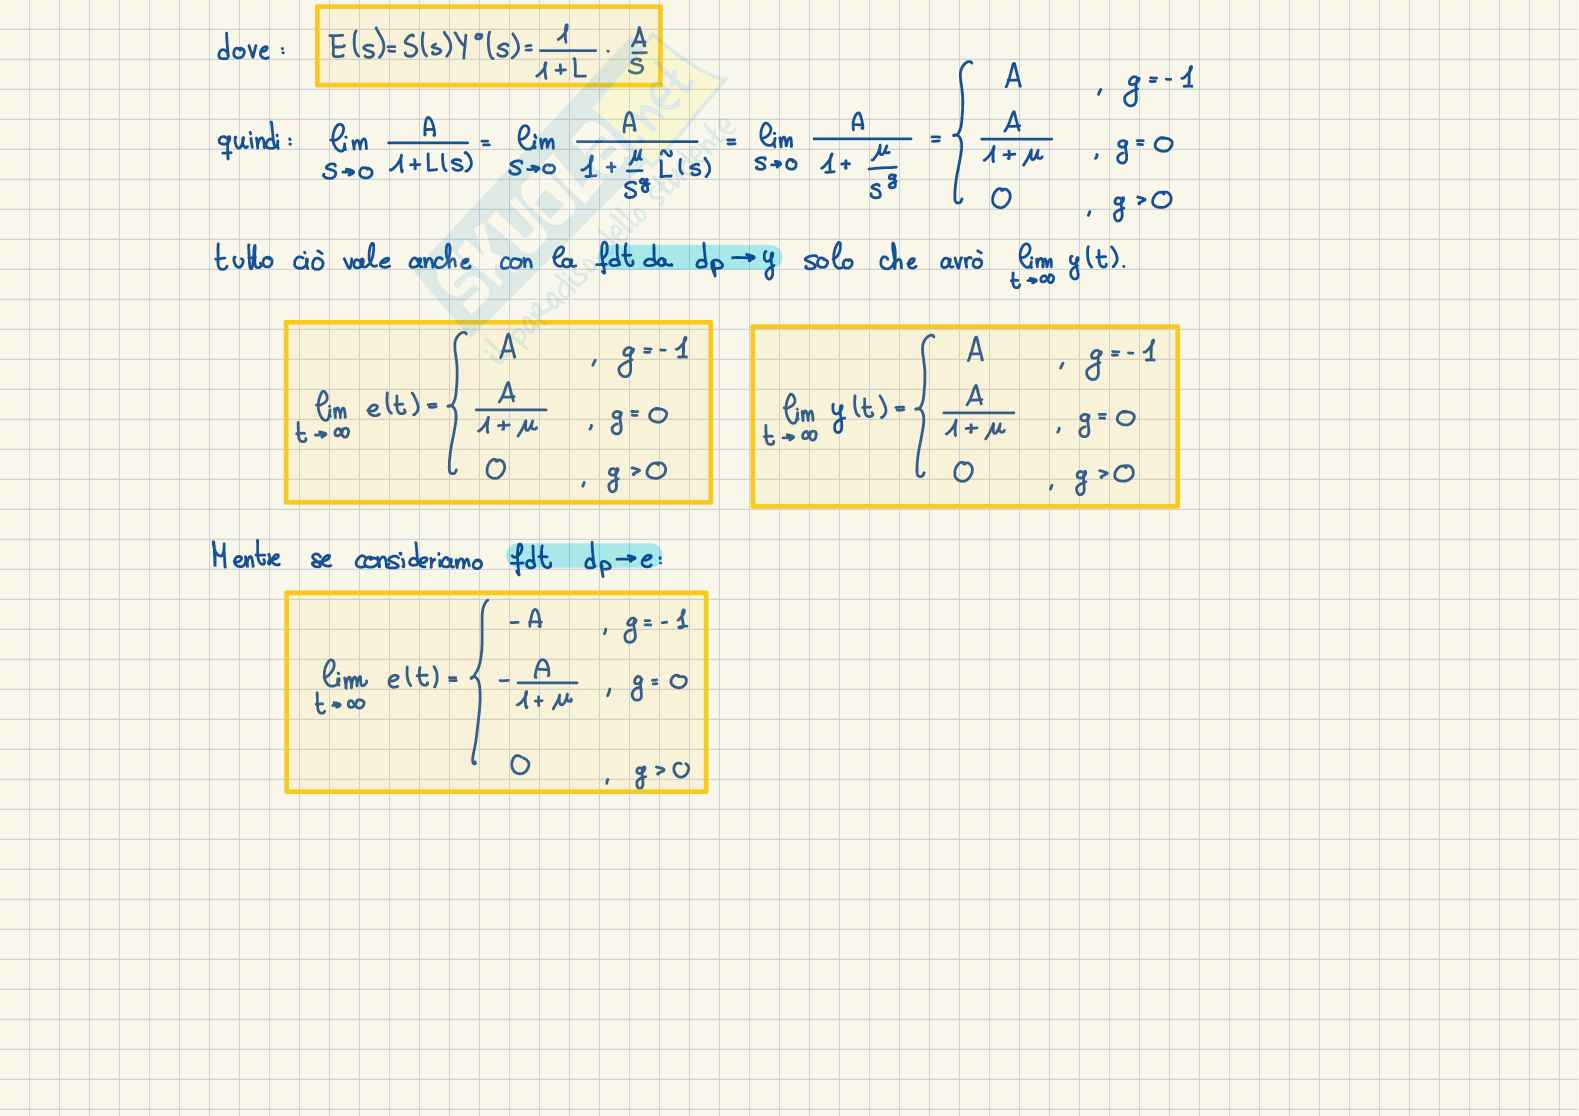 dove: E(s)=S(s)Y°(s)= 1/(1+L) · A/s
quindi: lim s→0 A/(1+L(s)) = lim s→0 A/(1+ μ/s^g L̃(s)) = lim s→0 A/(1+ μ/s^g) = { A , g=-1
A/(1+μ) , g=0
0 , g>0
tutto ciò vale anche con la fdt da dp→y solo che avrò lim t→∞ y(t).
lim t→∞ e(t)= { A , g=-1
A/(1+μ) , g=0
0 , g>0
lim t→∞ y(t)= { A , g=-1
A/(1+μ) , g=0
0 , g>0
Mentre se consideriamo fdt dp→e:
lim t→∞ e(t)= { -A , g=-1
-A/(1+μ) , g=0
0 , g>0
SKUOLA.net
il paradiso dello studente